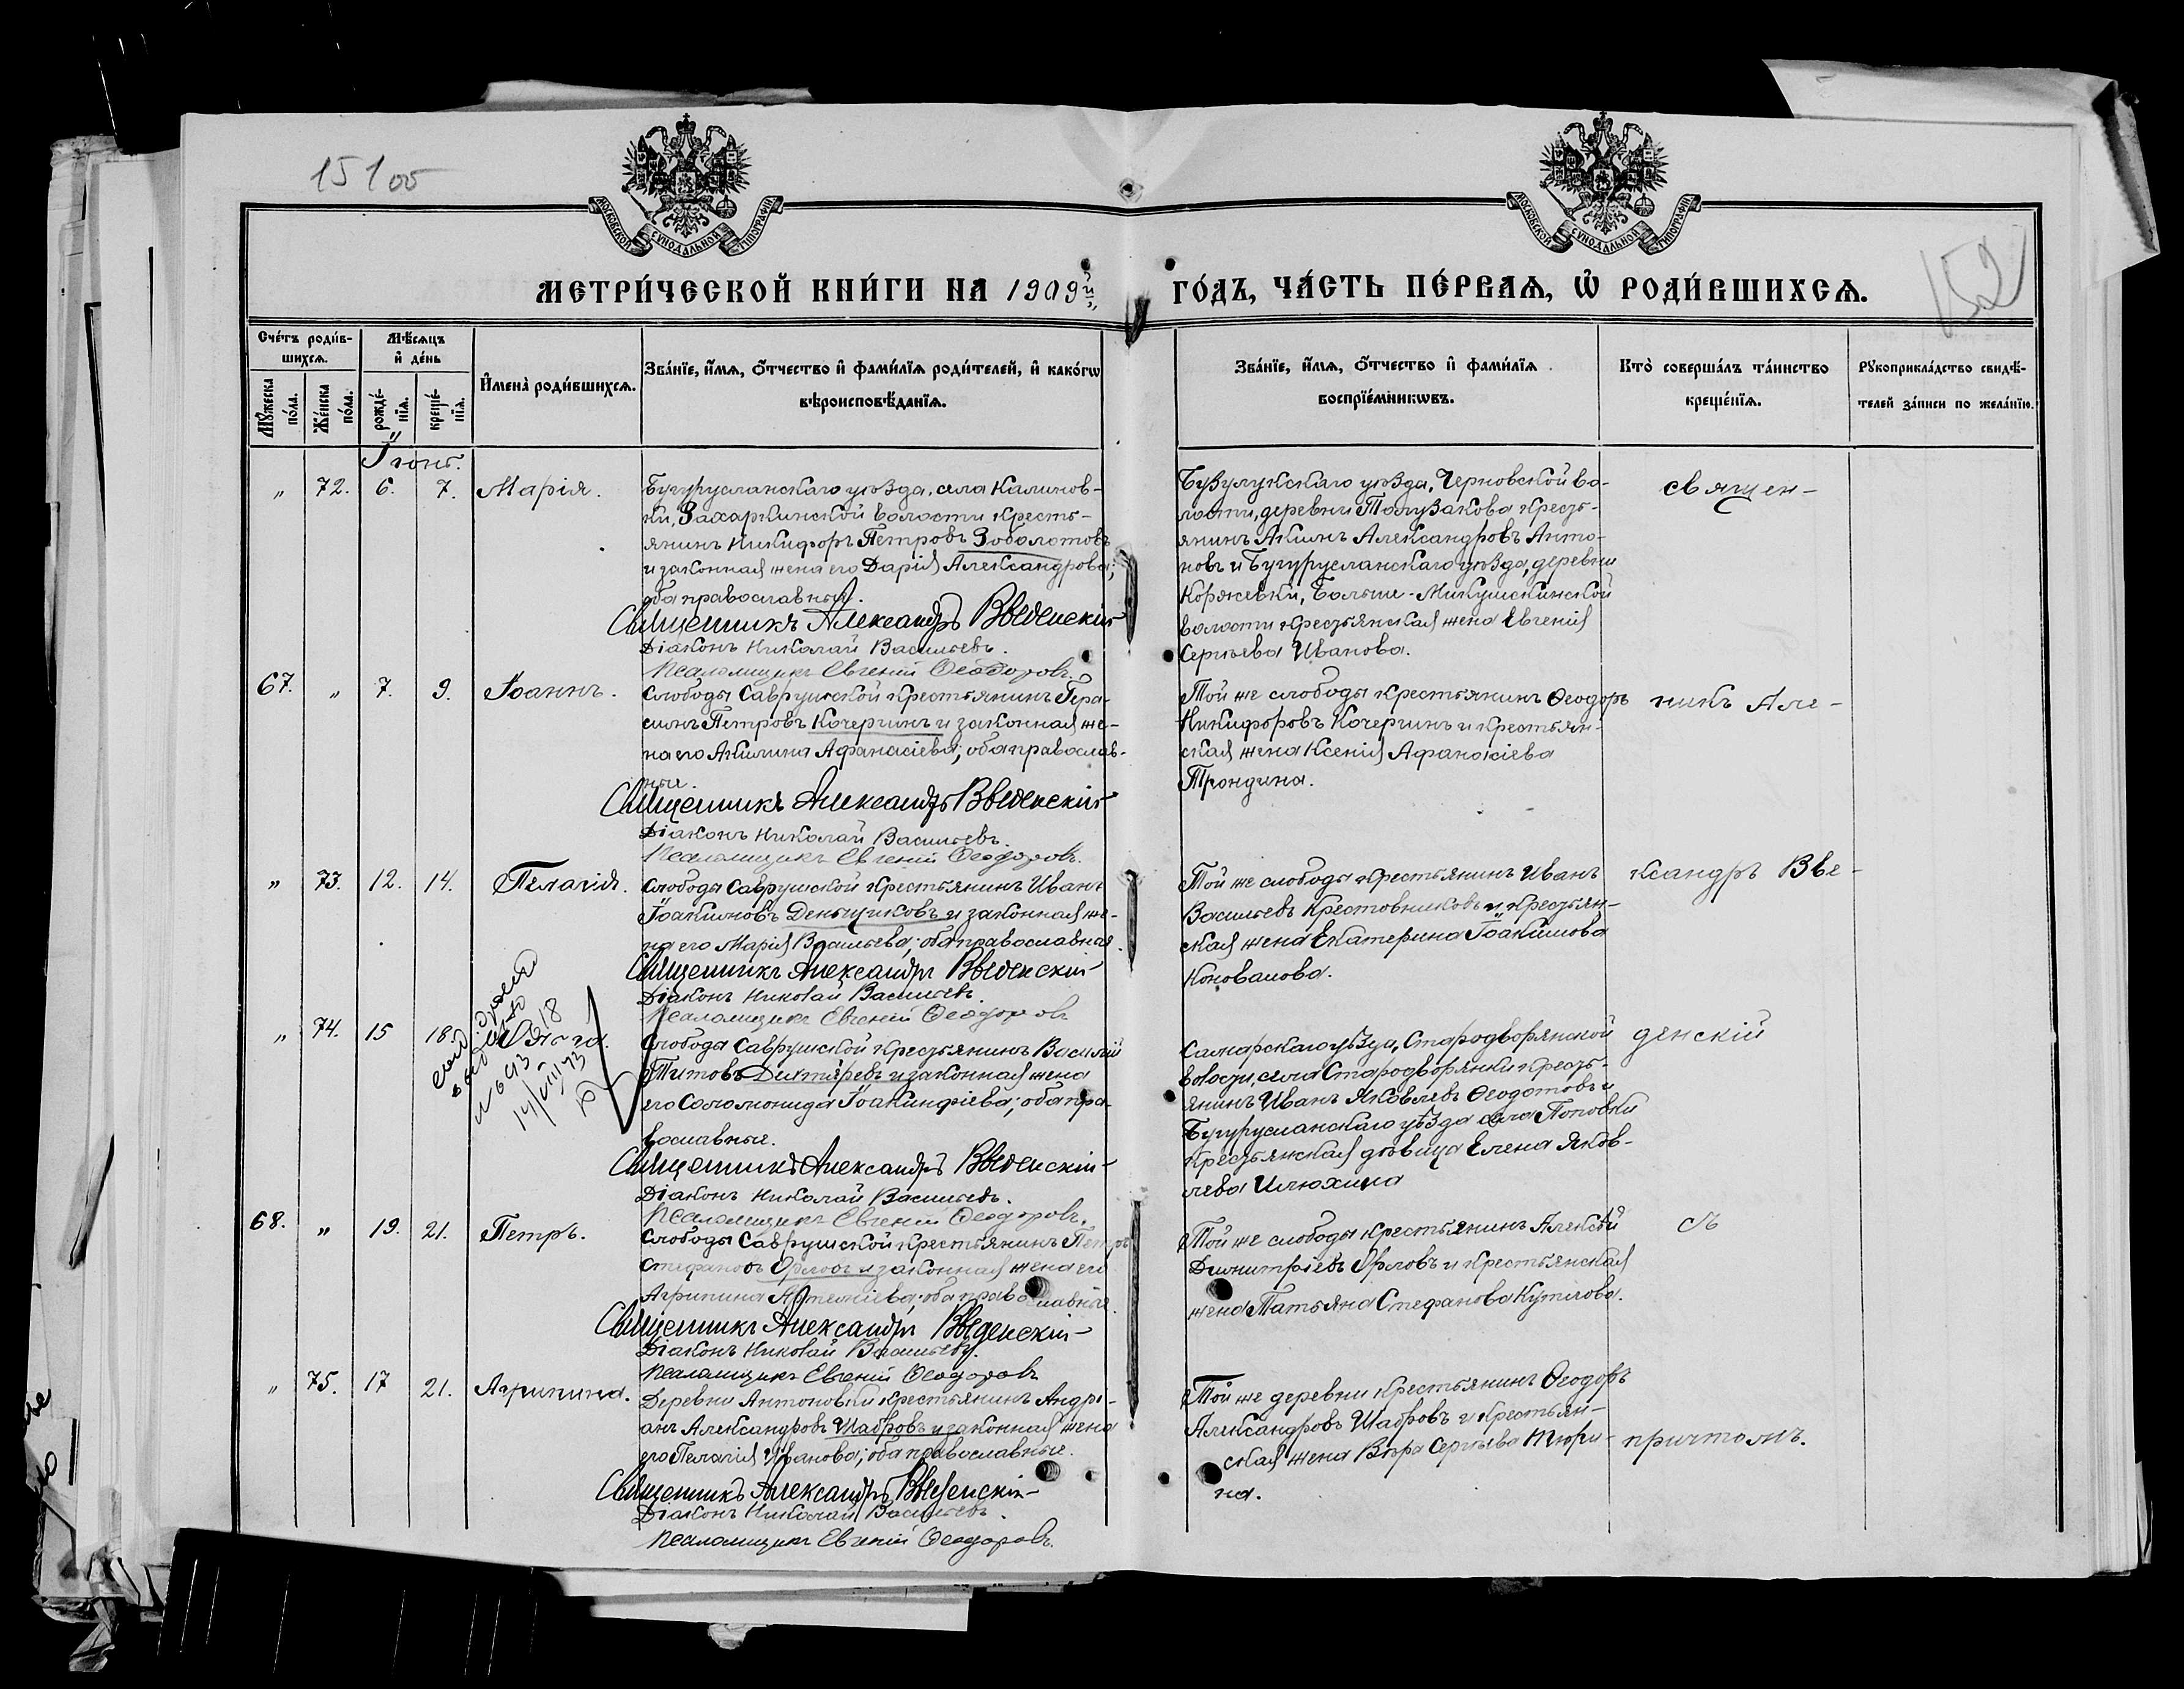 15100
МОСКОВСКОЙ СУНОДАЛЬНОЙ ТИПОГРАФІИ
МОСКОВСКОЙ СУНОДАЛЬНОЙ ТИПОГРАФІИ
152
МЕТРИ́ЧЕСКОЙ КНИ́ГИ НА 1909й
ГО́ДЪ, ЧА́СТЬ ПЕ́РВАѦ, Ѡ РОДИ́ВШИХСѦ.
Сче́тъ роди́в-
шихсѧ.
Мꙋ́жеска по́ла.
Же́нска по́ла.
Мѣ́сѧцъ
и҆ де́нь
рожде́-
нїѧ.
креще́-
нїѧ.
И҆мена̀ роди́вшихсѧ.
Зва́нїе, и҆́мѧ, ѻ҆́тчество и҆ фами́лїѧ роди́телей, и҆ како́гѡ
вѣроисповѣ́данїѧ.
Зва́нїе, и҆́мѧ, ѻ҆́тчество и҆ фами́лїѧ
воспрїе́мникѡвъ.
Кто̀ соверша́лъ та́инство
креще́нїѧ.
Рꙋкоприкла́дство свидѣ́-
телей за́писи по жела́нїю.
Іюнь.
" 72. 6. 7. Марія.
Бугурусланскаго уѣзда, села Калинов-
ки, Захаркинской волости кресть-
янинъ Никифоръ Петровъ Заболотовъ
и законная жена его Дарія Александрова;
оба православные.
Священникъ Александръ Введенскій
Діаконъ Николай Васильевъ.
Псаломщикъ Евгеній Ѳеодоровъ.
Бузулукскаго уѣзда, Черновской во-
лости, деревни Толузакова кресть-
янинъ Акимъ Александровъ Анто-
новъ и Бугурусланскаго уѣзда, деревни
Коржевки, Больше-Микушкинской
волости крестьянская жена Евгенія
Сергѣева Иванова.
священ-
67. " 7. 9. Іоаннъ.
Слободы Саврушской крестьянинъ Гера-
симъ Петровъ Кочергинъ и законная же-
на его Акилина Афанасіева; оба православ-
ные.
Священникъ Александръ Введенскій
Діаконъ Николай Васильевъ.
Псаломщикъ Евгеній Ѳеодоровъ.
Той же слободы крестьянинъ Ѳеодоръ
Никифоровъ Кочергинъ и крестьян-
ская жена Ксенія Афанасіева
Трондина.
никъ Але-
" 73. 12. 14. Пелагія.
Слободы Саврушской крестьянинъ Иванъ
Іоакимовъ Деньщиковъ и законная же-
на его Марія Васильева; оба православные.
Священникъ Александръ Введенскій
Діаконъ Николай Васильевъ.
Псаломщикъ Евгеній Ѳеодоровъ
Той же слободы крестьянинъ Иванъ
Васильевъ Крестовниковъ и крестьян-
ская жена Екатерина Іоакимова
Коновалова.
ксандръ Вве-
" 74. 15 18. Ольга.
14/VIII 73
Слободы Саврушской крестьянинъ Василій
Титовъ Дихтяревъ и законная жена
его Соломонида Іоакинфіева; оба пра-
вославные.
Священникъ Александръ Введенскій
Діаконъ Николай Васильевъ.
Псаломщикъ Евгеній Ѳеодоровъ.
Самарскаго уѣзда, Стародворянской
волости, села Стародворянки кресть-
янинъ Иванъ Яковлевъ Ѳеодотовъ и
Бугурусланскаго уѣзда села Поповки
крестьянская дѣвица Елена Яков-
лева Илюхина
денскій
68. " 19. 21. Петръ.
Слободы Саврушской крестьянинъ Петръ
Стефановъ Орловъ и законная жена его
Агрипина Артеміева; оба православные.
Священникъ Александръ Введенскій
Діаконъ Николай Васильевъ.
Псаломщикъ Евгеній Ѳеодоровъ
Той же слободы крестьянинъ Алексѣй
Димитріевъ Орловъ и крестьянская
жена Татьяна Стефанова Кутлова.
съ
" 75. 17 21. Агрипина.
Деревни Антоновки крестьянинъ Андрі-
анъ Александровъ Шабровъ и законная жена
его Пелагія Иванова; оба православные.
Священникъ Александръ Введенскій
Діаконъ Николай Васильевъ.
Псаломщикъ Евгеній Ѳеодоровъ.
Той же деревни крестьянинъ Ѳеодоръ
Александровъ Шабровъ и крестьян-
ская жена Вѣра Сергѣева Тюри-
на.
причтомъ.